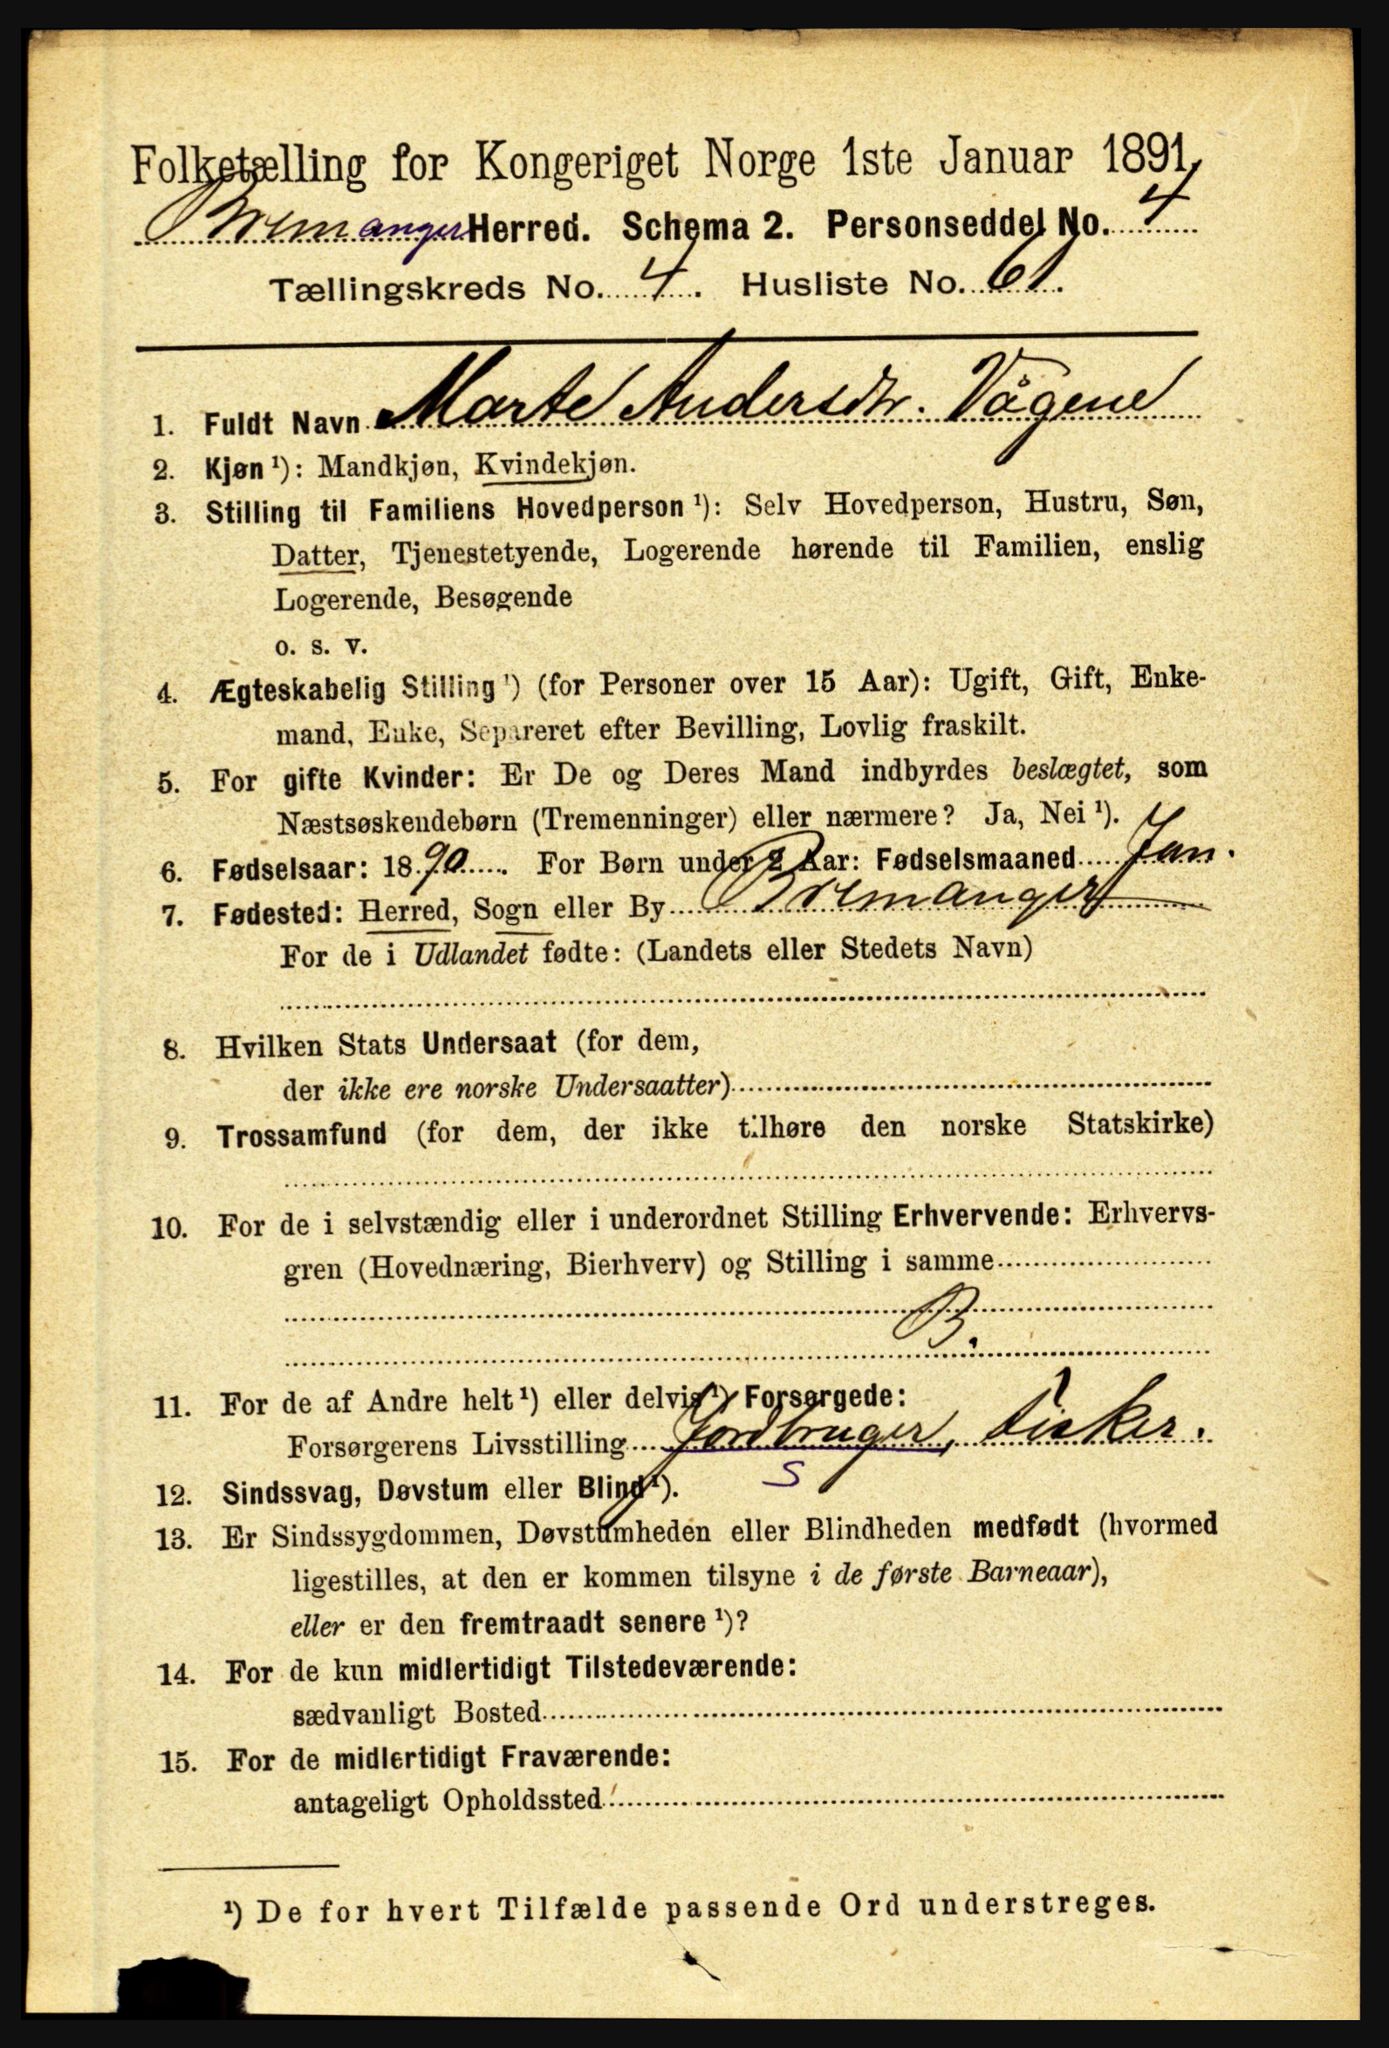 Folketælling for Kongeriget Norge 1ste Januar 1891.
Bremanger Herred. Schema 2. Personseddel No. 4
Tællingskreds No. 4. Husliste No. 61.
1. Fuldt Navn Marte Andersdtr. Vågene
2. Kjøn¹): Mandkjøn, Kvindekjøn.
3. Stilling til Familiens Hovedperson¹): Selv Hovedperson, Hustru, Søn,
Datter, Tjenestetyende, Logerende hørende til Familien, enslig
Logerende, Besøgende
o. s. v.
4. Ægteskabelig Stilling¹) (for Personer over 15 Aar): Ugift, Gift, Enke-
mand, Enke, Separeret efter Bevilling, Lovlig fraskilt.
5. For gifte Kvinder: Er De og Deres Mand indbyrdes beslægtet, som
Næstsøskendebørn (Tremenninger) eller nærmere? Ja, Nei¹).
6. Fødselsaar: 1890. For Børn under 2 Aar: Fødselsmaaned Jan.
7. Fødested: Herred, Sogn eller By Bremanger
For de i Udlandet fødte: (Landets eller Stedets Navn)
8. Hvilken Stats Undersaat (for dem,
der ikke ere norske Undersaatter)
9. Trossamfund (for dem, der ikke tilhøre den norske Statskirke)
10. For de i selvstændig eller i underordnet Stilling Erhvervende: Erhvervs-
gren (Hovednæring, Bierhverv) og Stilling i samme
B.
11. For de af Andre helt¹) eller delvis¹) Forsørgede:
Forsørgerens Livsstilling Jordbruger, fisker.
S
12. Sindssvag, Døvstum eller Blind¹).
13. Er Sindssygdommen, Døvstumheden eller Blindheden medfødt (hvormed
ligestilles, at den er kommen tilsyne i de første Barneaar),
eller er den fremtraadt senere¹)?
14. For de kun midlertidigt Tilstedeværende:
sædvanligt Bosted
15. For de midlertidigt Fraværende:
antageligt Opholdssted
¹) De for hvert Tilfælde passende Ord understreges.